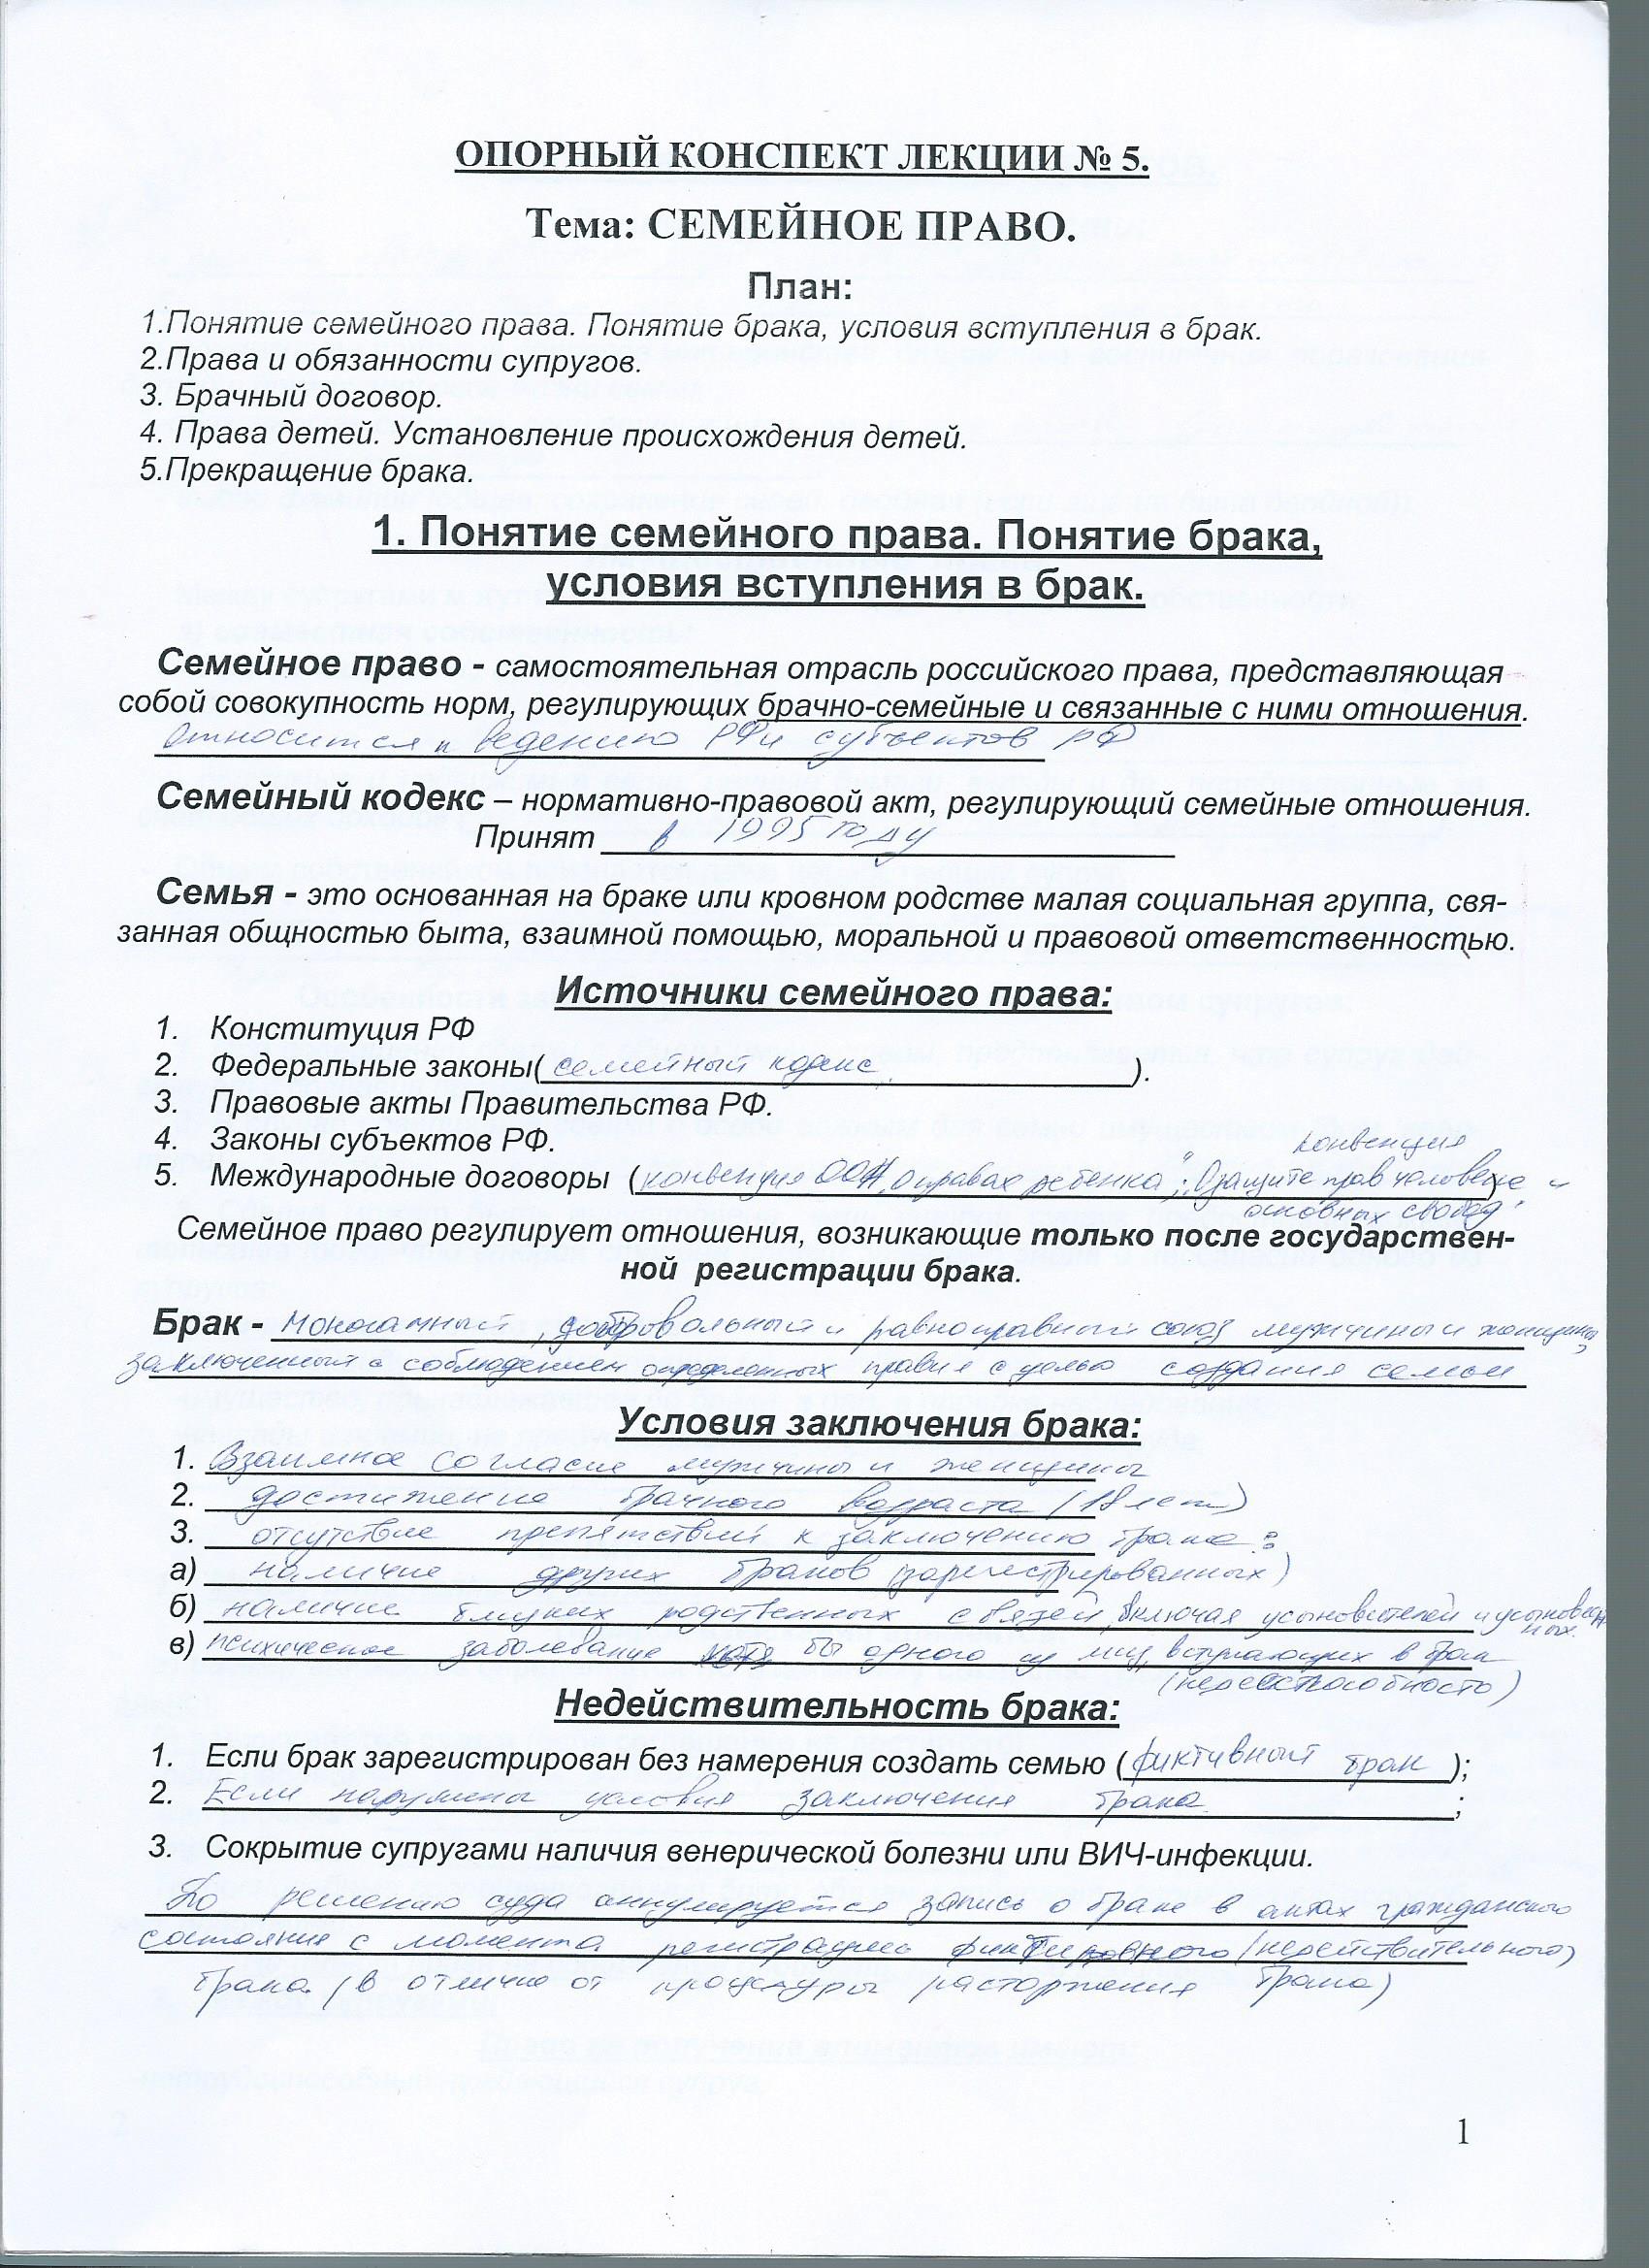 ОПОРНЫЙ КОНСПЕКТ ЛЕКЦИИ № 5.
Тема: СЕМЕЙНОЕ ПРАВО.
План:
1.Понятие семейного права. Понятие брака, условия вступления в брак.
2.Права и обязанности супругов.
3. Брачный договор.
4. Права детей. Установление происхождения детей.
5.Прекращение брака.
1. Понятие семейного права. Понятие брака,
условия вступления в брак.
Семейное право - самостоятельная отрасль российского права, представляющая
собой совокупность норм, регулирующих брачно-семейные и связанные с ними отношения.
Относится к ведению РФ и субъектов РФ
Семейный кодекс – нормативно-правовой акт, регулирующий семейные отношения.
Принят в 1995 году
Семья - это основанная на браке или кровном родстве малая социальная группа, свя-
занная общностью быта, взаимной помощью, моральной и правовой ответственностью.
Источники семейного права:
1. Конституция РФ
2. Федеральные законы( семейный кодекс ).
3. Правовые акты Правительства РФ.
4. Законы субъектов РФ.
конвенция
5. Международные договоры (конвенция ООН „О правах ребенка“; „О защите прав человека и)
основных свобод“
Семейное право регулирует отношения, возникающие только после государствен-
ной регистрации брака.
Брак - моногамный, добровольный и равноправный союз мужчины и женщины,
заключенный с соблюдением определенных правил с целью создания семьи
Условия заключения брака:
1. Взаимное согласие мужчины и женщины
2. достижение брачного возраста (18 лет)
3. отсутствие препятствий к заключению брака:
а) наличие других браков (зарегистрированных)
б) наличие близких родственных связей, включая усыновителей и усыновлен
ных.
в) психическое заболевание хотя бы одного из лиц, вступающих в брак
Недействительность брака:
1. Если брак зарегистрирован без намерения создать семью (фиктивный брак);
2. Если нарушены условия заключения брака ;
3. Сокрытие супругами наличия венерической болезни или ВИЧ-инфекции.
По решению суда аннулируется запись о браке в актах гражданского
состояния с момента регистрации (недействительного)
брака (в отличие от процедуры расторжения брака)
1